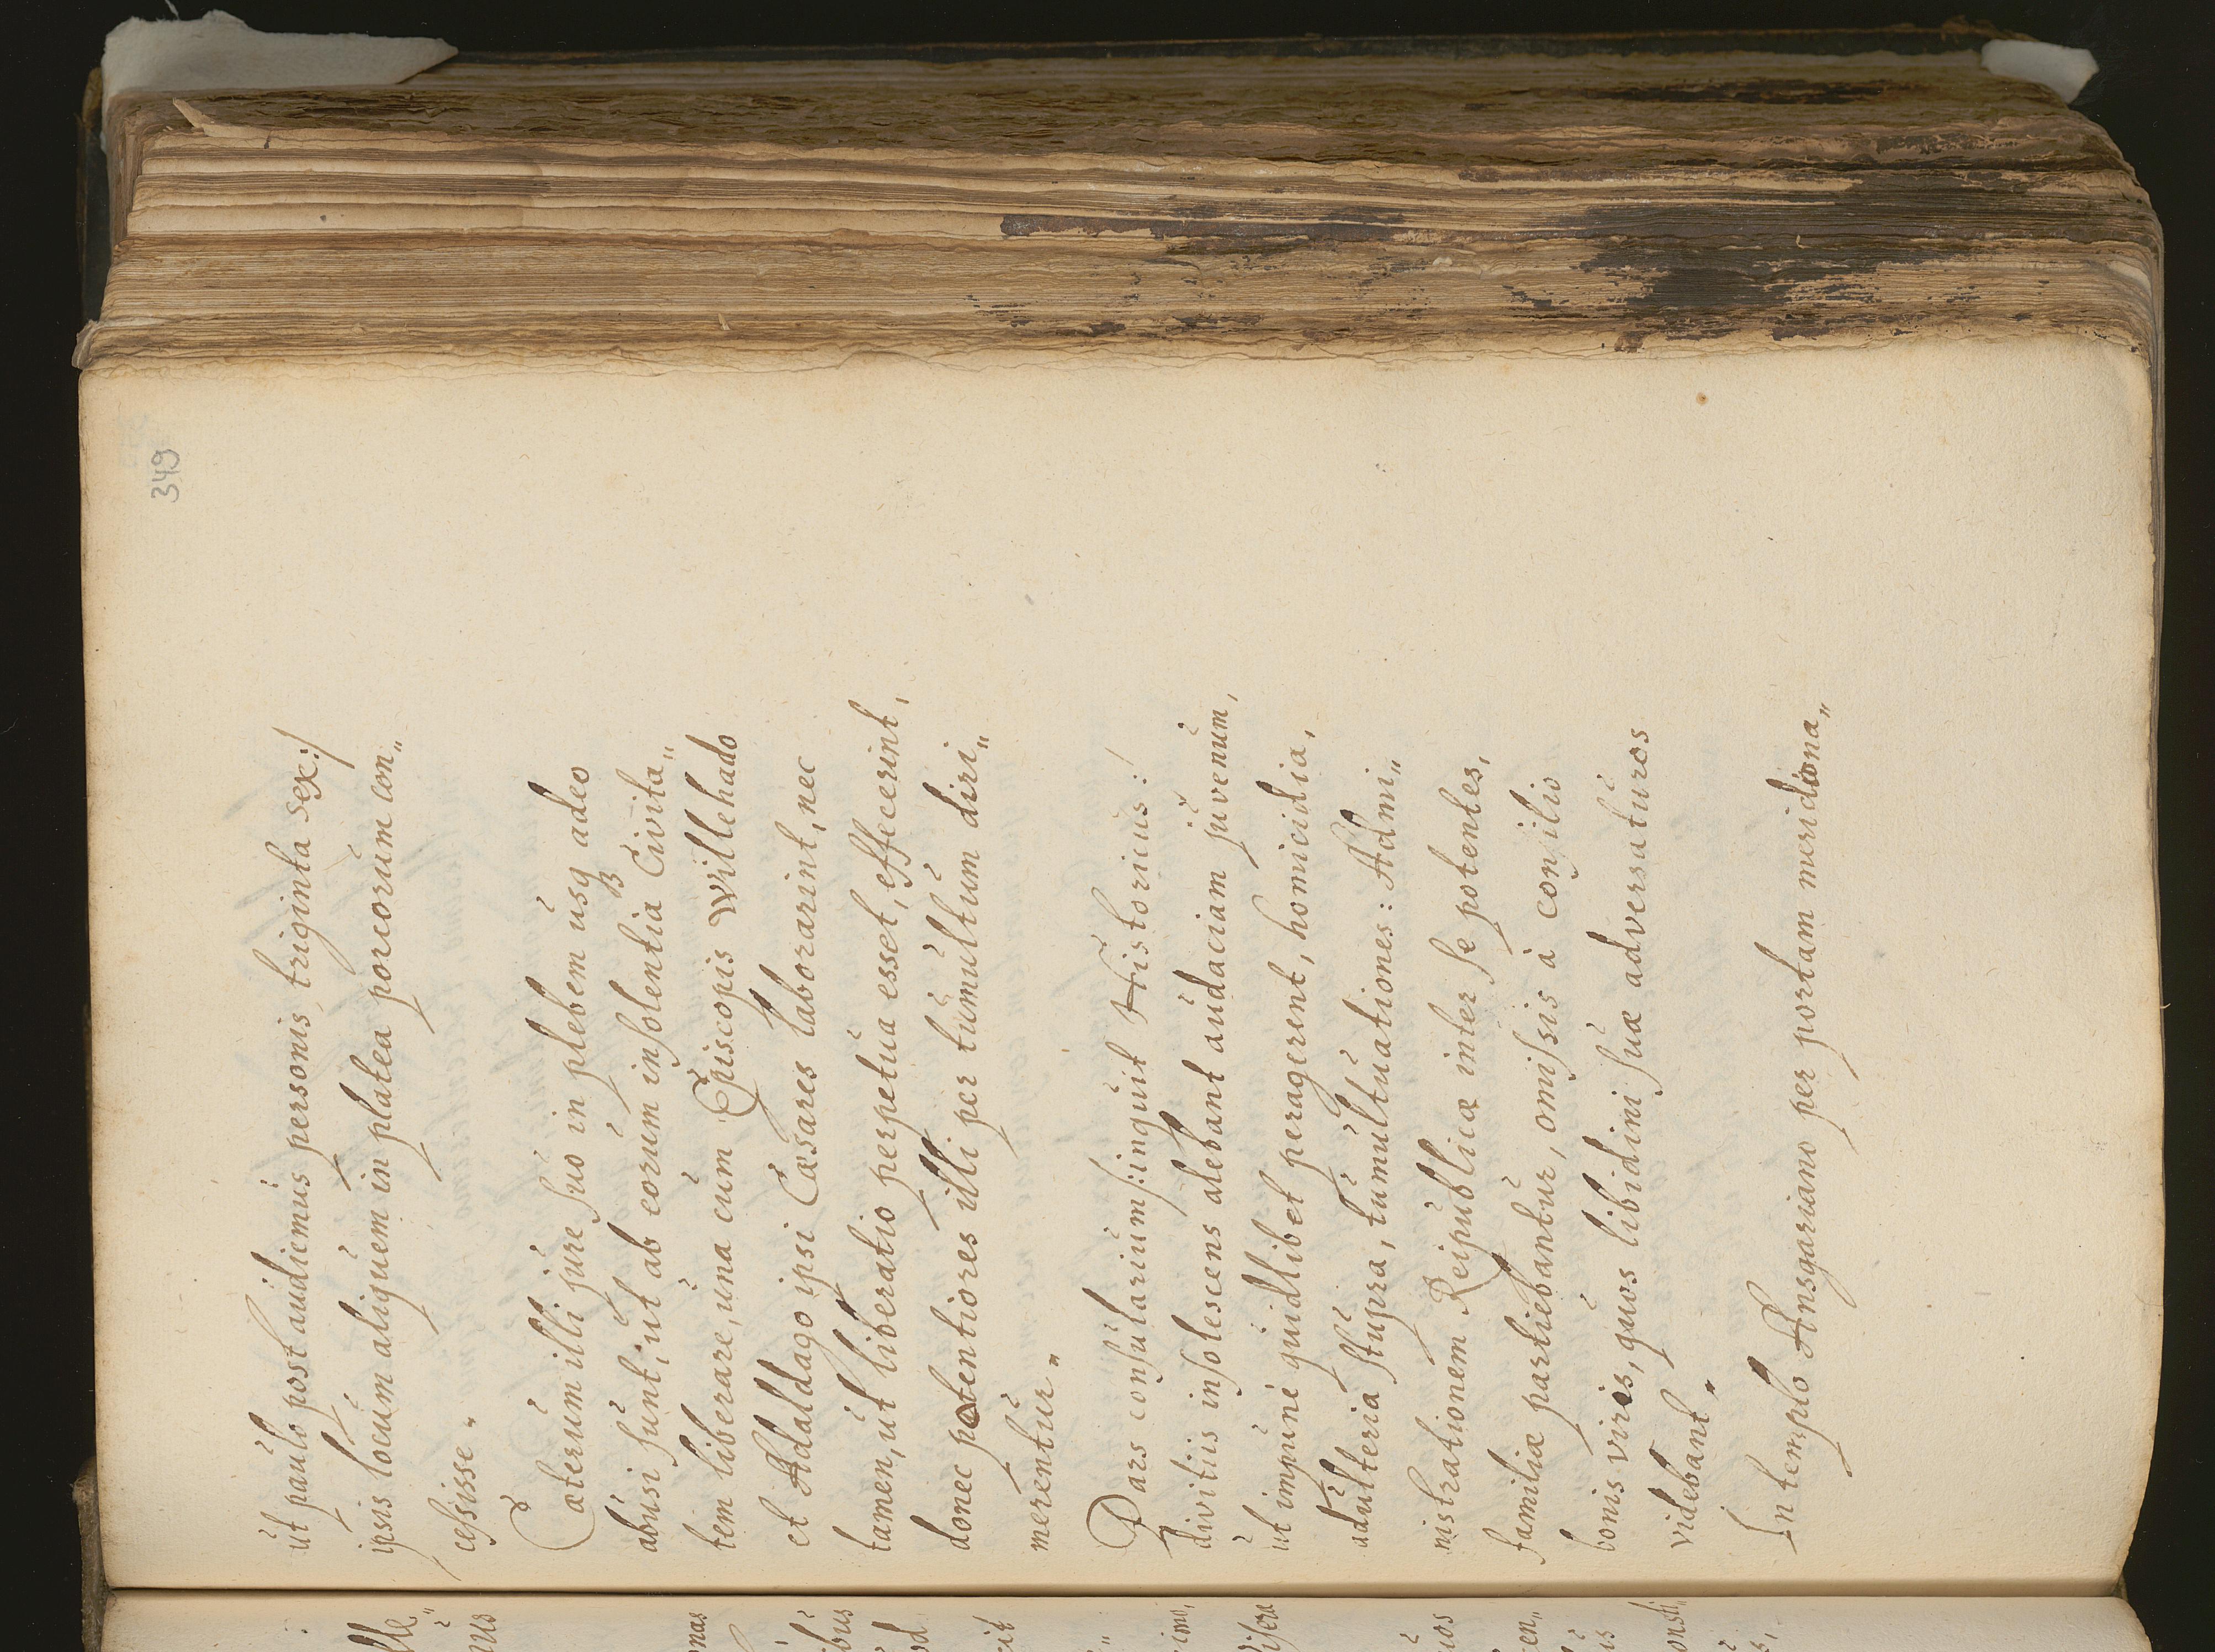 349
ut paulo post audiemus personis triginta sex:/
ipsis locum aliquem in platea porcorum con„
cessisse„
Cæterum illi jure suo in plebem usq3 adeo
abusi sunt, ut ab eorum insolentia Civita„
tem liberare, una cum Episcopis Willehado
et Adaldago ipsi Cæsares laborarint, nec
tamen, ut liberatio perpetua esset, effecerint,
donec potentiores illi per tumultum diri„
merentur„
Pars consularium /:inquit Historicus:/
divitiis insolescens alebant audaciam juvenum,
ut impunè quidlibet peragerent, homicidia,
adulteria stupra, tumultuationes: Admi„
nistrationem Reipublicæ inter se potentes,
familiæ partiebantur, omissis à consilio
bonis viris, quos libidini suæ adversaturos
videbant„
In templo Ansgariano per portam meridiona„